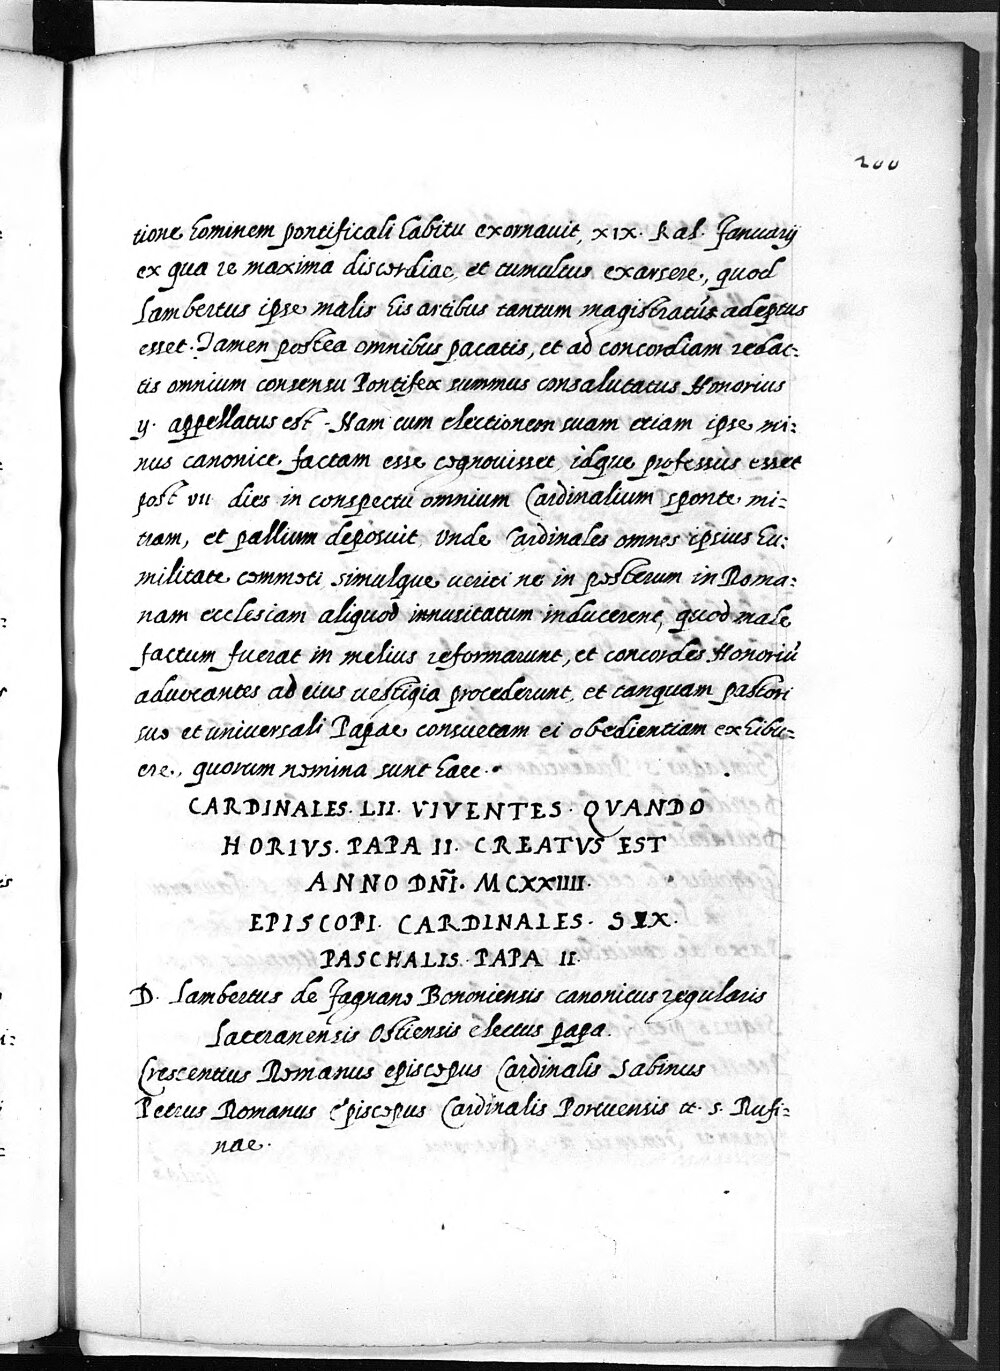 200
tione hominem pontificali habitu exornauit, XIX. Kal. Januarij
ex qua re maxima discordiae, et tumultus exarsere, quod
Lambertus ipse malis his artibus tantum magistratũ adeptus
esset. Tamen postea omnibus pacatis, et ad concordiam redac=
tis omnium consensu Pontifex summus consalutatus Honorius
ij. appellatus est. Nam cum electionem suam etiam ipse mi=
nus canonice factam esse cognouisset, idque professus esset
post VII dies in conspectu omnium Cardinalium sponte mi=
tram, et pallium deposuit, Vnde Cardinales omnes ipsius hu=
militate commoti, simulque ueriti ne in posterum in Roma=
nam ecclesiam aliquod innusitatum inducerent, quod male
factum fuerat in melius reformarunt, et concordes Honoriũ
aduocantes ad eius uestigia procederunt, et tanquam pastori
suo et uniuersali Papae consuetam ei obedientiam exhibu=
ere, quorum nomina sunt haec.
CARDINALES. LII. VIVENTES. QVANDO
HORIVS. PAPA II. CREATVS EST
ANNO DÑI. MCXXIIII.
EPISCOPI. CARDINALES. SEX.
PASCHALIS. PAPA II.
D. Lambertus de Fagnano Bononiensis canonicus regularis
Lateranensis Ostiensis electus papa.
Crescentius Romanus episcopus Cardinalis Sabinus
Petrus Romanus episcopus Cardinalis Portuensis et s. Rufi=
nae.